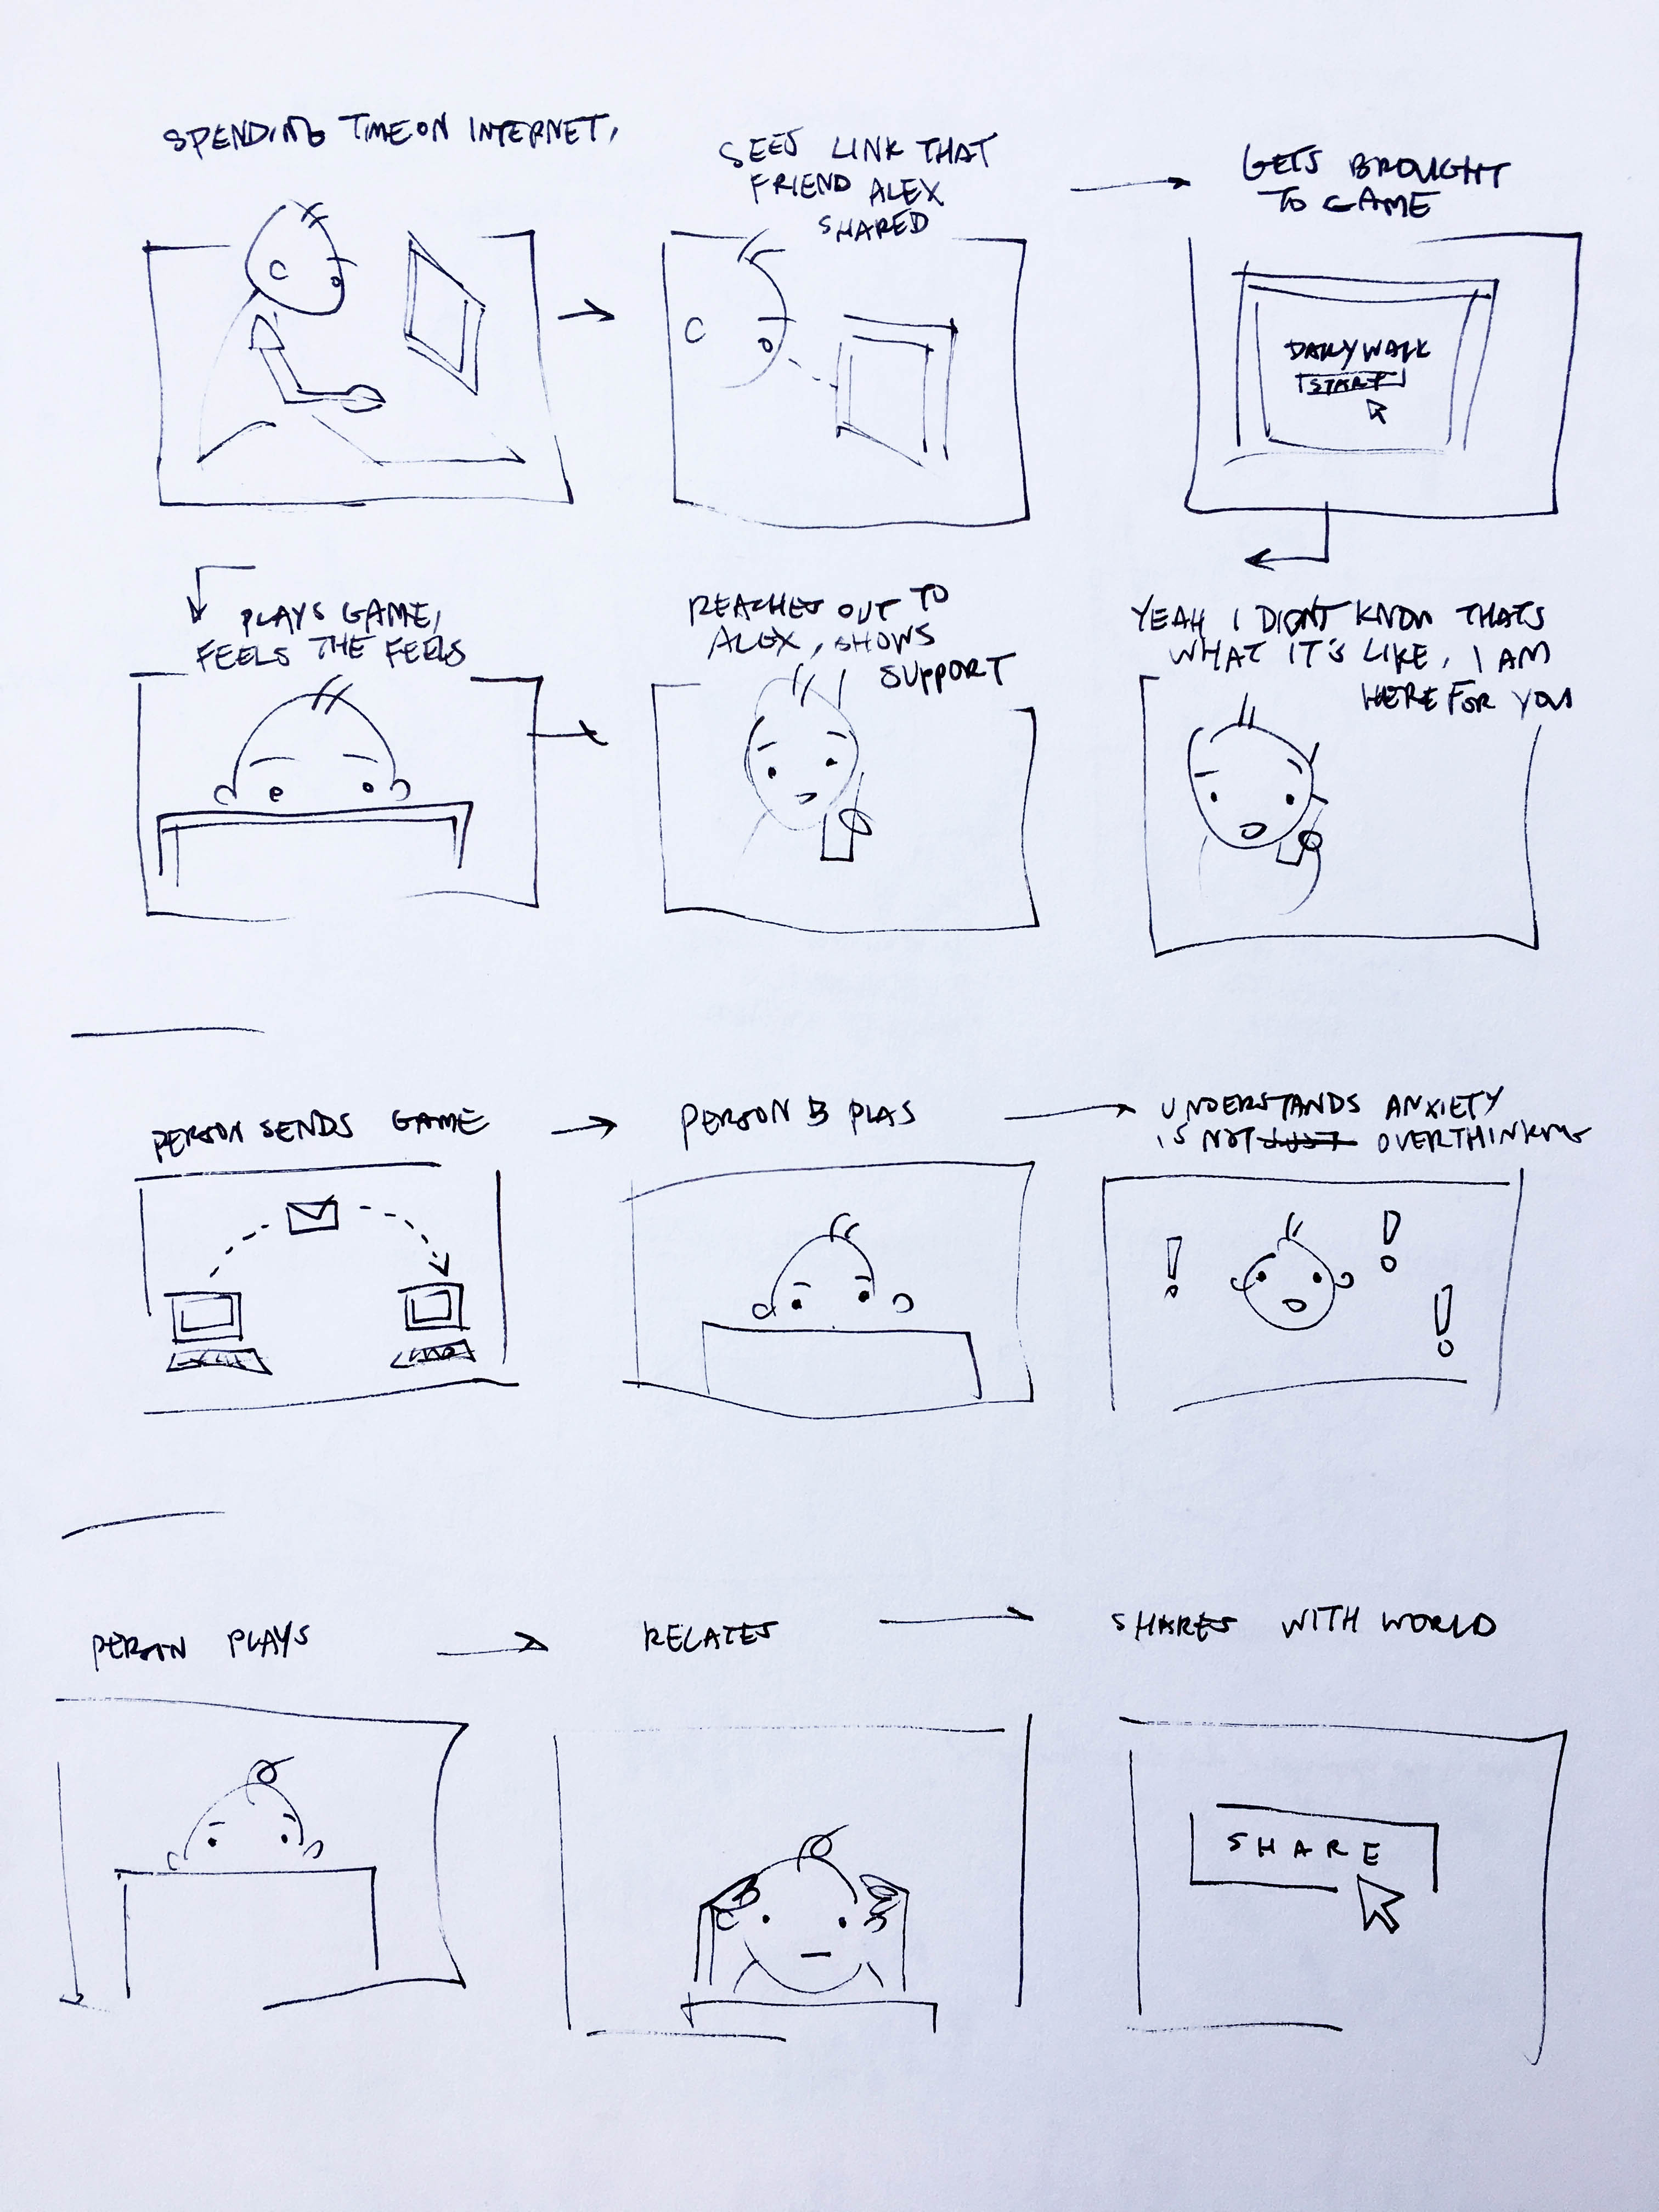 SPENDING TIME ON INTERNET,
SEES LINK THAT
FRIEND ALEX
SHARED
GETS BROUGHT
TO GAME
DAILY WALK
START
PLAYS GAME,
FEELS THE FEELS
REACHES OUT TO
ALEX, SHOWS
SUPPORT
YEAH I DIDN'T KNOW THATS
WHAT IT'S LIKE, I AM
HERE FOR YOU
PERSON SENDS GAME
PERSON B PLAS
UNDERSTANDS ANXIETY
IS NOT JUST OVERTHINKING
PERSON PLAYS
RELATES
SHARES WITH WORLD
SHARE